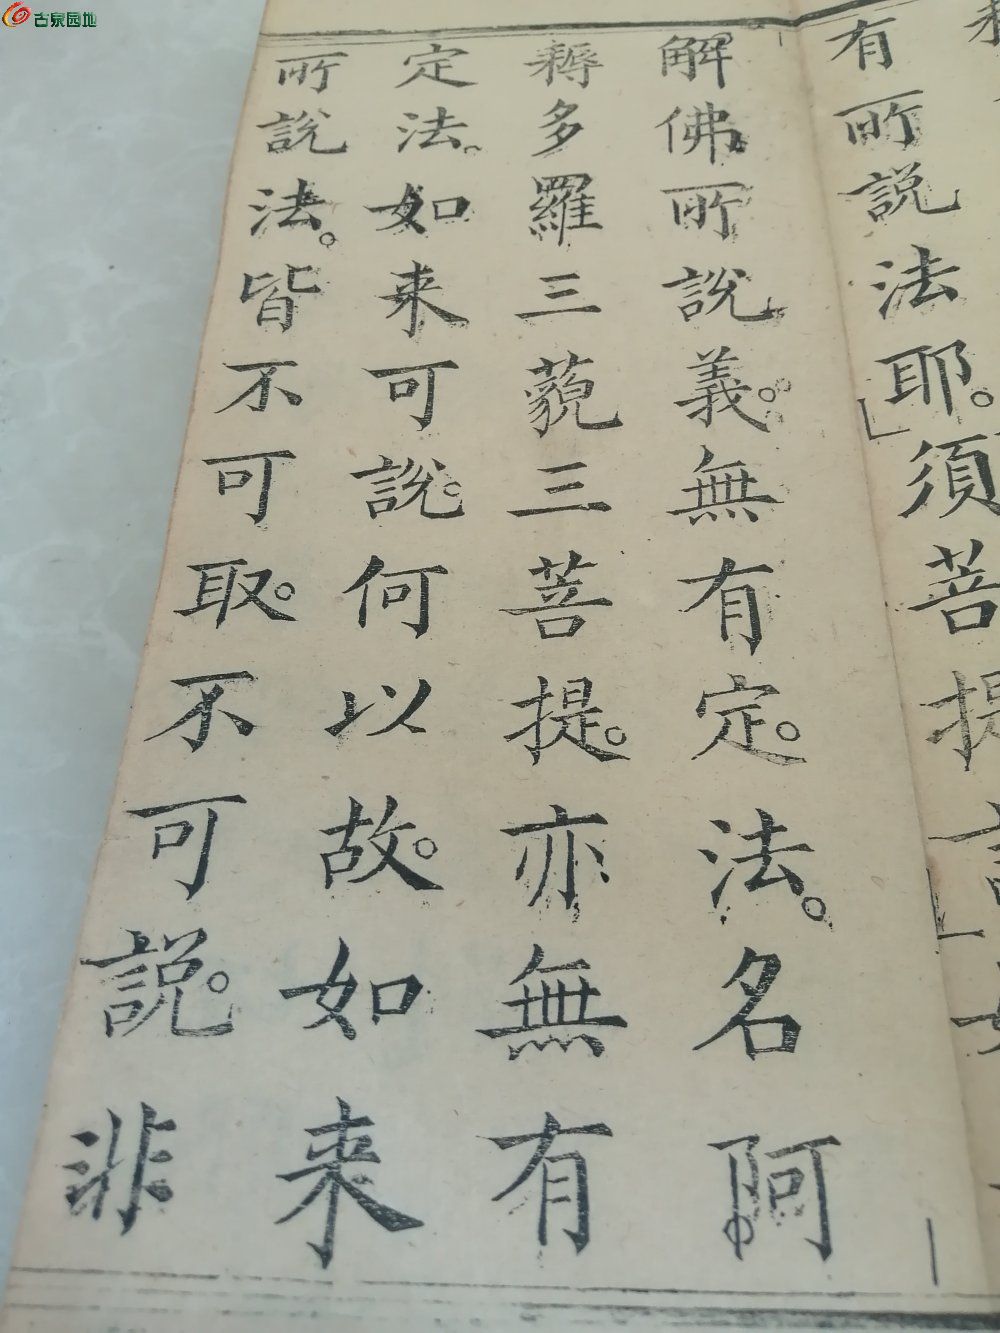 古泉园地
耨
有所說法耶。須菩提言
解佛所說義。無有定。法。名阿
耨多羅三藐三菩提。亦無有
定法。如来可說。何以故。如来
所說法。皆不可取。不可說。非